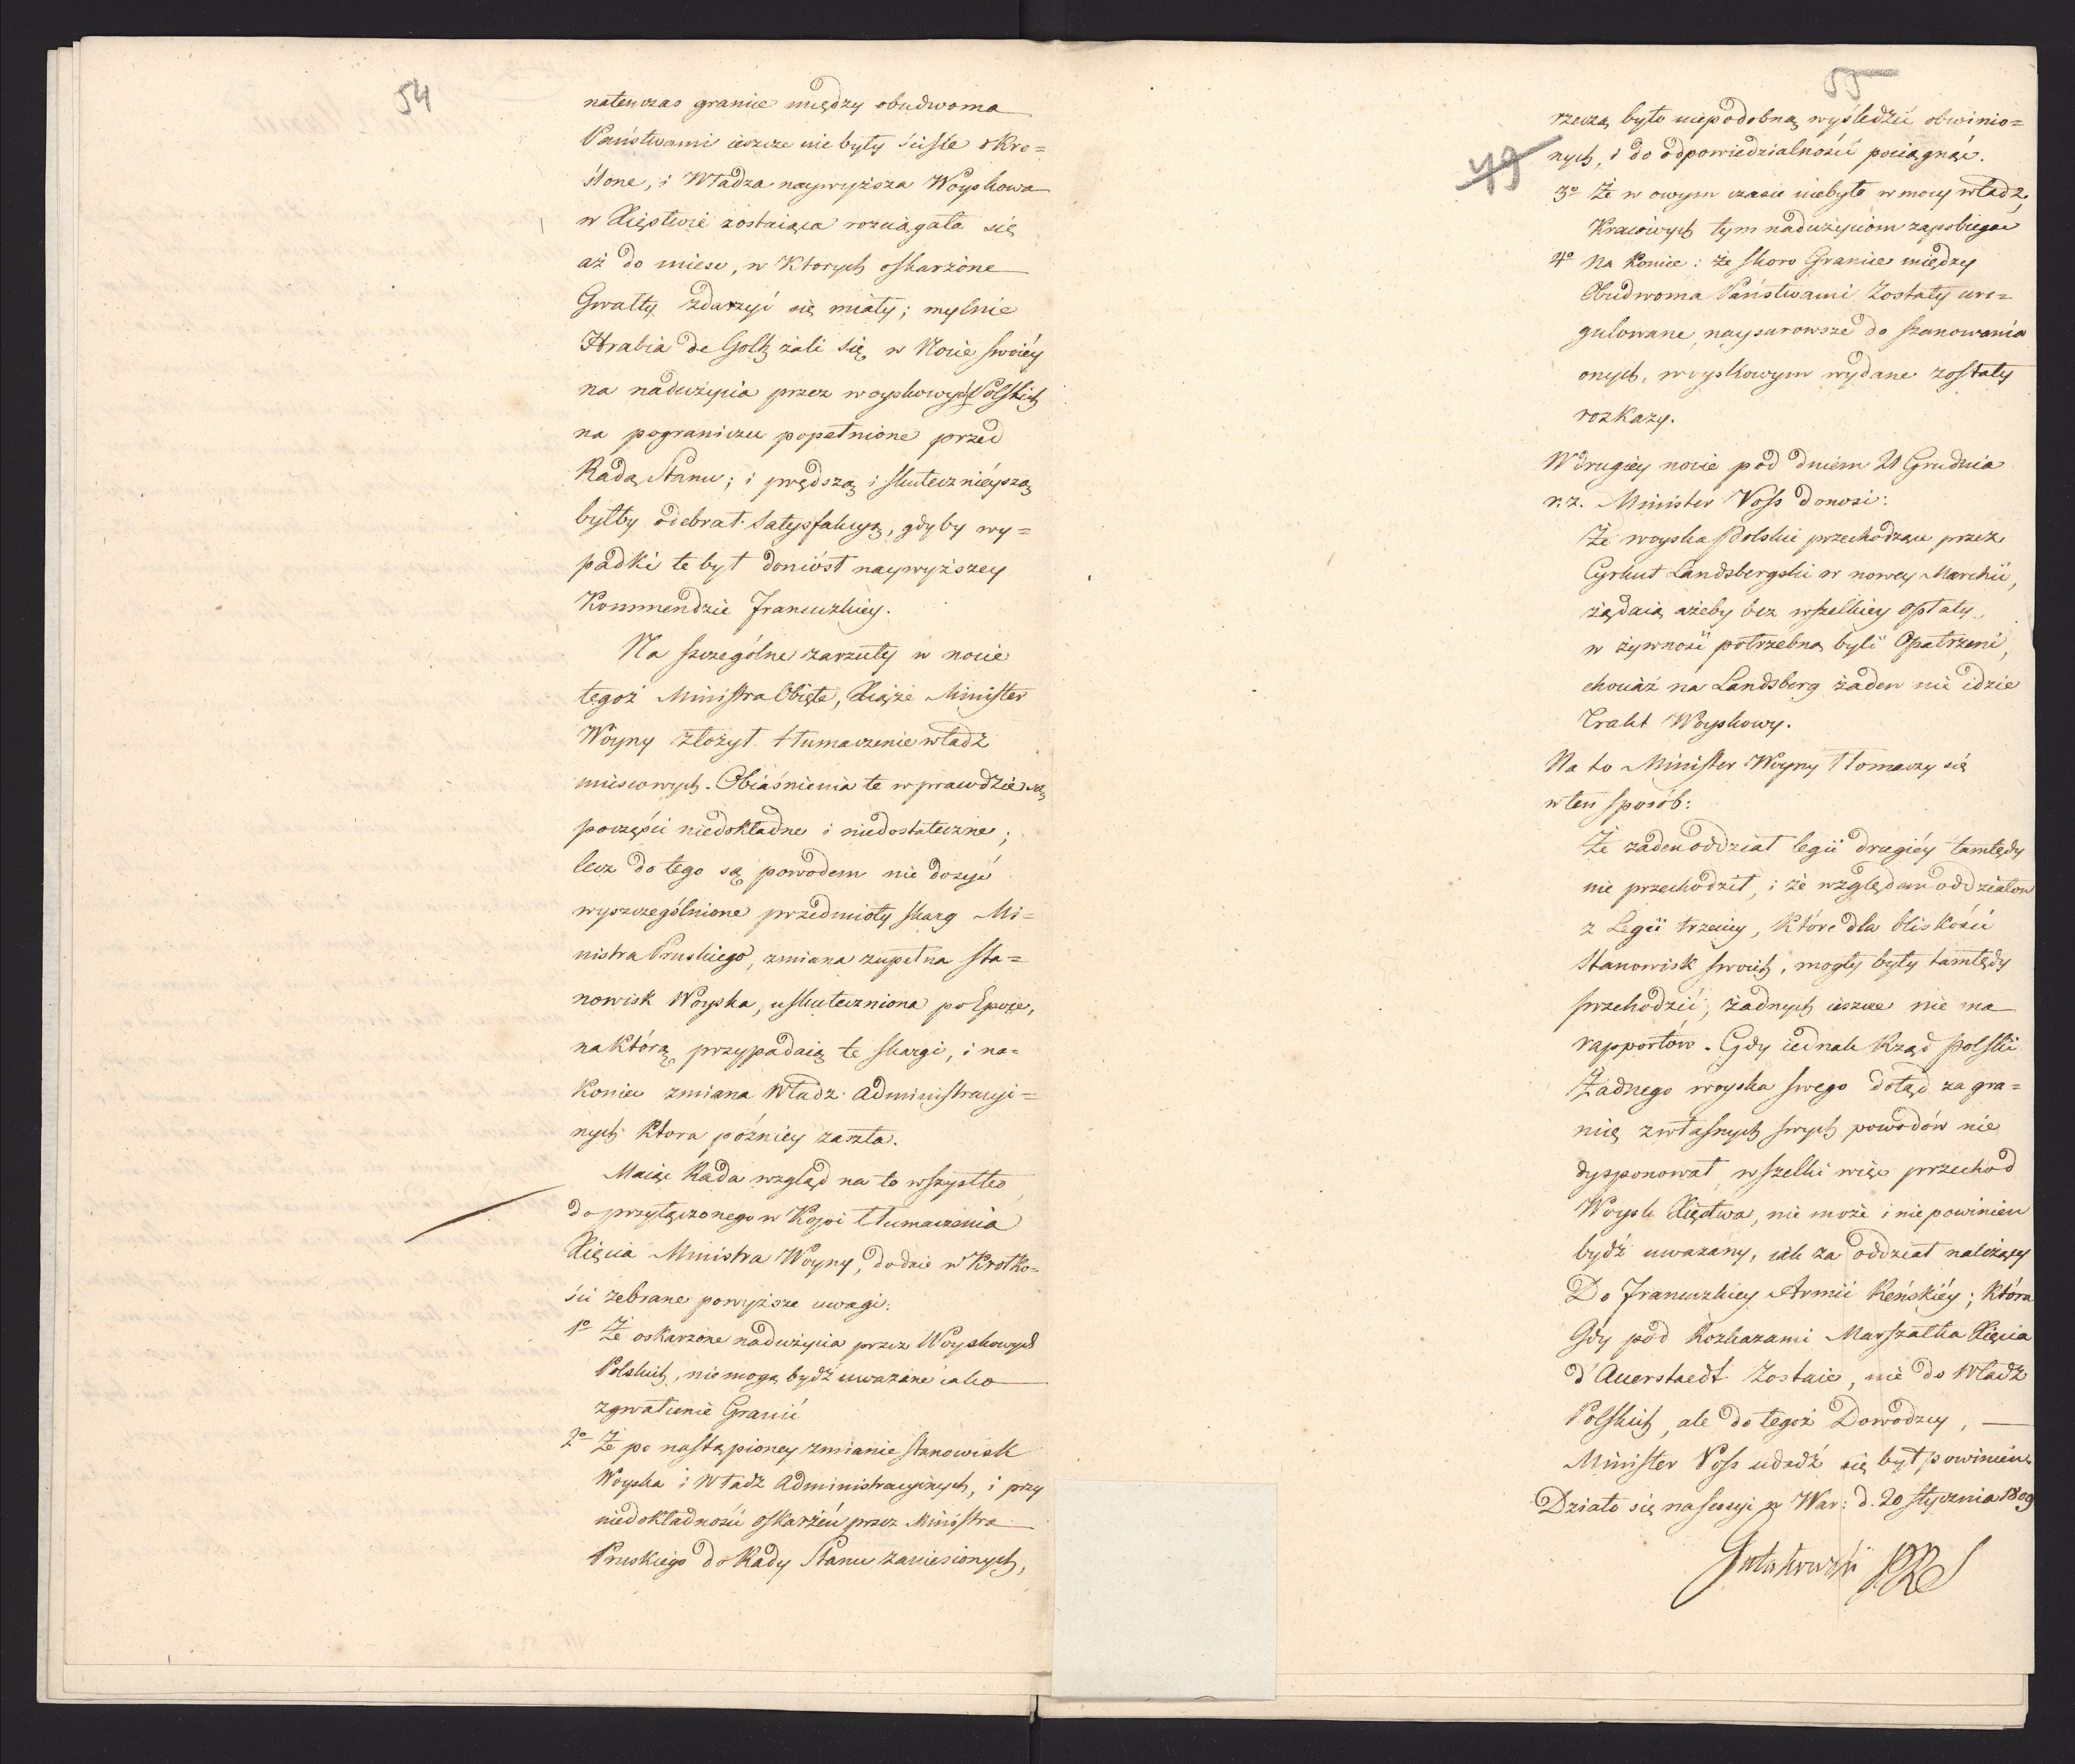 54
natenczas granice między obudwoma
Państwami ieszcze nie były ściśle okre=
ślone, i Władza naywyższa Woyskowa
w Xięstwie zostaiąca rozciągała się
aż do miesc, w Ktorych oskarżone
Gwałty zdarzyć się miały; mylnie
Hrabia de Goltz żali się w Nocie swoiéy
na nadużycia przez woyskowych Polskich
na pograniczu popełnione przed
Radą Stanu; i prędszą i skutecznieyszą
byłby odebrał satysfakcyą, gdyby wy=
padki te był doniósł naywyższey
Kommendzie francuzkiey.
Na szczególne zarzuty w nocie
tegoż Ministra Obięte, Xiąże Minister
Woyny złożył tłumaczenie władz
mieiscowych. Obiaśnienia te wprawdzie są
poczęści niedokładne i niedostateczne;
lecz do tego są powodem nie dosyć
wyszczególnione przedmioty skarg Mi=
nistra Pruskiego, zmiana zupełna sta=
nowisk Woyska, uskuteczniona po Epoce,
na którą przypadaią te skargi, i na=
koniec zmiana Władz administracyi=
nych ktora późniey zaszła.
Maiąc Rada wzgląd na to wszystko,
do przyłączonego w Kopii tłumaczenia
Xięcia Ministra Woyny, dodaie w krotko=
ści zebrane powyższe uwagi:
1o Że oskarżone nadużycia przez Woyskowych
Polskich, nie mogą bydź uważane iako
zgwałcenie Granic
2o Że po nastąpioney zmianie stanowisk
Woyska i Władz administracyinych, i przy
niedokładności oskarżeń przez Ministra
Pruskiego do Rady Stanu zaniesionych,
55
49
rzeczą było niepodobną wyśledzić obwinio=
nych, i do odpowiedzialności pociągnąć.
3o Że w owym czasie niebyło w mocy władz
Kraiowych tym nadużyciom zapobiegać
4o Na koniec: że skoro Granice między
Obudwoma Państwami Zostały ure=
gulowane, naysurowsze do szanowania
onych, woyskowym wydane zostały
rozkazy.
W drugiey nocie pod dniem 21 Grudnia
r. z. Minister Voss donosi:
Że woyska Polskie przechodząc przez
Cyrkuł Landsbergski w nowey Marchii,
żądaią ażeby bez wszelkiey opłaty
w żywność potrzebną byli Opatrzeni,
chociaż na Landsberg żaden nie idzie
Trakt Woyskowy.
Na to Minister Woyny tłomaczy się
w ten sposób:
Że żaden oddział legii drugiéy tamtędy
nie przechodził, i że względem oddziałow
z Legii trzeciey, które dla bliskości
Stanowisk swoich, mogły były tamtędy
przechodzić, żadnych ieszcze nie ma
rapportów. Gdy iednak Rząd Polski
Żadnego woyska swego dotąd za gra=
nicę z własnych swych powodów nie
dysponował, wszelki więc przechod
Woysk Xięstwa, nie może i nie powinien
bydź uważany, iak za oddział należący
Do francuzkiey Armii Reńskiéy; która
Gdy pod Rozkazami Marszałka Xięcia
d'Auerstaedt Zostaie, nie do Władz
Polskich, ale do tegoż Dowodzcy,
Minister Voss udadź się był powinien.
Działo się na sessyi w War: d. 20 stycznia 1809
Gutakowski PRS